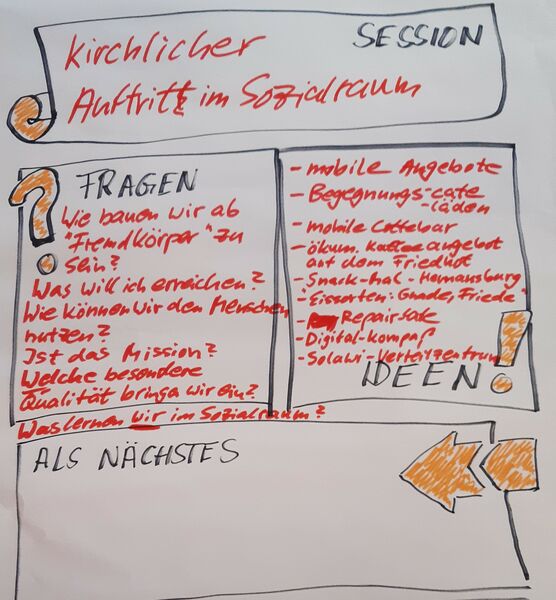 SESSION
Kirchlicher
Auftritt im Sozialraum
? FRAGEN
Wie bauen wir ab
"Fremdkörper" zu
sein?
Was will ich erreichen?
Wie können wir den Menschen
nutzen?
Ist das Mission?
Welche besondere
Qualität bringa wir ein?
Was lernen wir im Sozialraum?
- mobile Angebote
- Begegnungs-cafe
-läden
- mobile Coffebar
- ökum. Kaffeeangebot
auf dem Friedhof
- Snack-mal - Hermansburg
- "Eissorten: Gnade, Friede"
- Repaircafe
- Digital-Kompaß
- Solawi-Verteilzentrum
IDEEN !
ALS NÄCHSTES